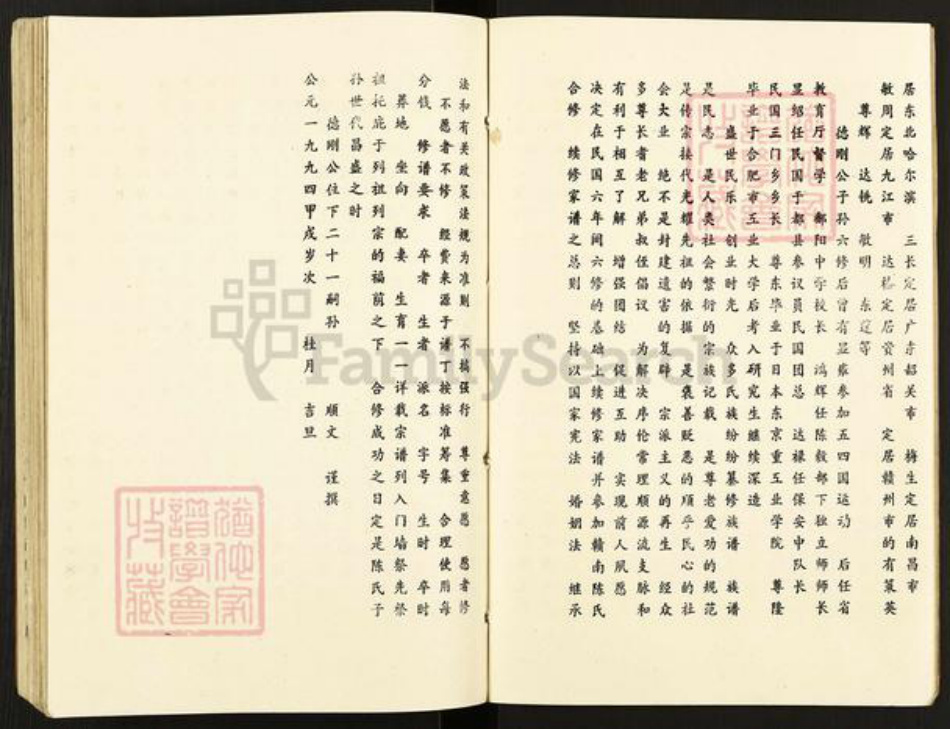 居东北哈尔滨 三长定居广东韶关市 梅生定居南昌市
敏周定居九江市 达榕定居贵州省 定居赣州市的有策英
尊辉 达铣 敏明 东辽等
德刚公子孙六修后曾有显雍参加五四国运动 后任省
教育厅督学 鄱阳中学校长 鸿辉任陈毅部下独立师师长
显邹任民国于都县参议员民国团总 达禄任保安中队长
民国三门乡乡长 尊东毕业于日本东京重工业学院 尊隆
毕业于合肥市工业大学后考入研究生继续深造
盛世民乐 创业时光 众多氏族纷纷纂修族谱 族谱
是民志 是人类社会繁衍的宗族记载 是尊老爱功的规范
是传宗接代光耀先祖的依据 是褒善贬恶的顺乎民心的社
会大业 绝不是封建遗害的复辟 宗派主义的再生 经众
多尊长者老兄弟叔侄倡议 为解决序伦常理顺源流支脉和
有利于相互了解 增强团结 促进互助 实现前人夙愿
决定在民国六年间六修的基础上续修家谱并参加赣南陈氏
合修 续修家谱之总则 坚持以国家宪法 婚姻法 继承
法和有关政策法规为准则 不搞强行 尊重意愿 愿者修
不愿者不修 经费来源于谱丁按标准筹集 合理使用每
分钱 修谱要求 卒者 生者 派名 字号 生时 卒时
葬地 坐向 配妻 生育一一详载宗谱列入门墙祭先祭
祖托庇于列祖列宗的福荫之下 合修成功之日定是陈氏子
孙世代昌盛之时
德刚公位下二十一嗣孙 顺文 谨撰
公元一九九四甲戌岁次 桂月 吉旦
FamilySearch